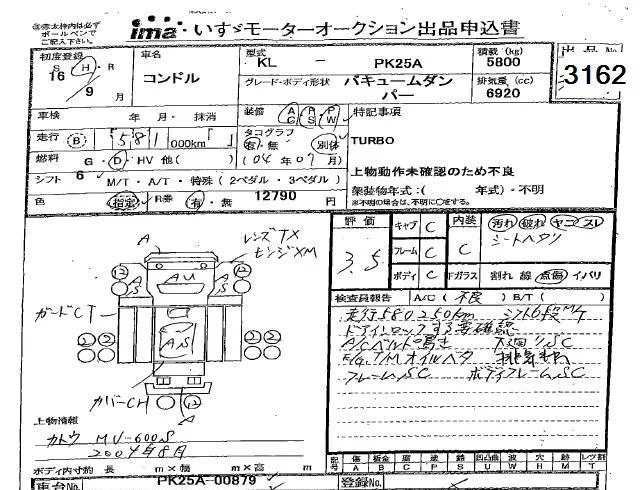 ※赤太枠内は必ず
ボールペンで
ご記入下さい。
ima いすゞモーターオークション出品申込書
初度登録 S・H・R 16 9 月
車名 コンドル
型式 KL - PK25A
積載 (kg) 5800
出品No. 3162
グレード・ボディ形状 バキュームダンパー
排気量 (cc) 6920
車検 年・月・抹消
装備 AC PS PW
特記事項
走行 B 581 000km
タコグラフ 有・無 別体
TURBO
燃料 G・D・HV 他( ) (04年07月)
上物動作未確認のため不良
シフト 6 M/T・A/T・特殊(2ペダル・3ペダル)
架装物年式:( 年式)・不明
※不明の場合は、不明に○をする。
色 指定 R券 有・無 12790 円
評価 3.5
キャブ C 内装 C
フレーム C
ボディ C Fガラス
汚れ 破れ ヤニ・スレ
シートヘタリ
割れ 線 点傷 イバリ
レンズTX
ヒンジXM
A
12 12
AS AU AS
ガードCT
2 2 2 2
AS
カバーCH
A
検査員報告 A/C(不良) B/T( )
走行580250km シフト6段M/T
ドアインロックする要確認
A/Cベルト鳴き
E/G,T/Mオイルベタ
フレームSC ボディフレームSC
上物情報
カトウ MV-600S
2004年8月
ボディ内寸約 長 m×幅 m×高 m
記号 傷 A 板金 B 腐 C 塗 P 錆 S 凹凸曲 U 波 W 穴 H 跡 M レンズ割 T
車台No. PK25A-00879
登録No.